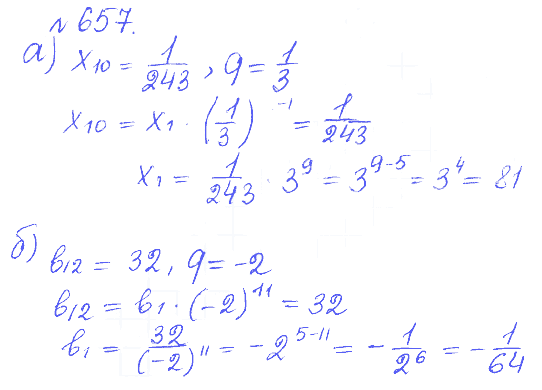 № 657.
а) x₁₀ = 1/243, q = 1/3
x₁₀ = x₁ · (1/3)⁻¹ = 1/243
x₁ = 1/243 · 3⁹ = 3⁹⁻⁵ = 3⁴ = 81
б) b₁₂ = 32, q = -2
b₁₂ = b₁ · (-2)¹¹ = 32
b₁ = 32/(-2)¹¹ = -2⁵⁻¹¹ = -1/2⁶ = -1/64